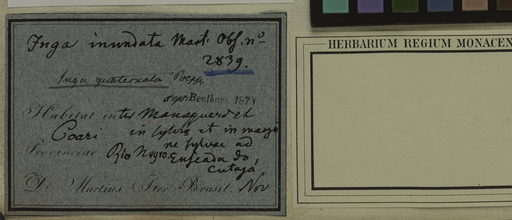 Inga inundata Mart. Obs. nº
2839.
Inga quaternata Poepp
Benth. 1871
Habitat inter Managuerd et
Coari in sylvis et in margi
Provinciae Rio Negro. ne sylvae ad
Enseada do
De Martius Iter Brasil. Nov
HERBARIUM REGIUM MONACEN